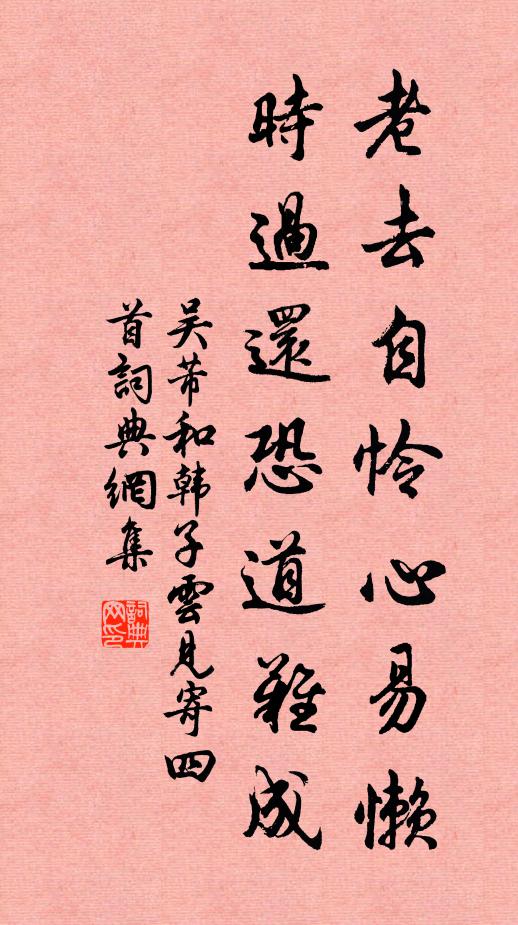 老去自怜心易懒
時過還恐道難成
吴芾和韩子雲見寄四
首詞典網集
詞典網印